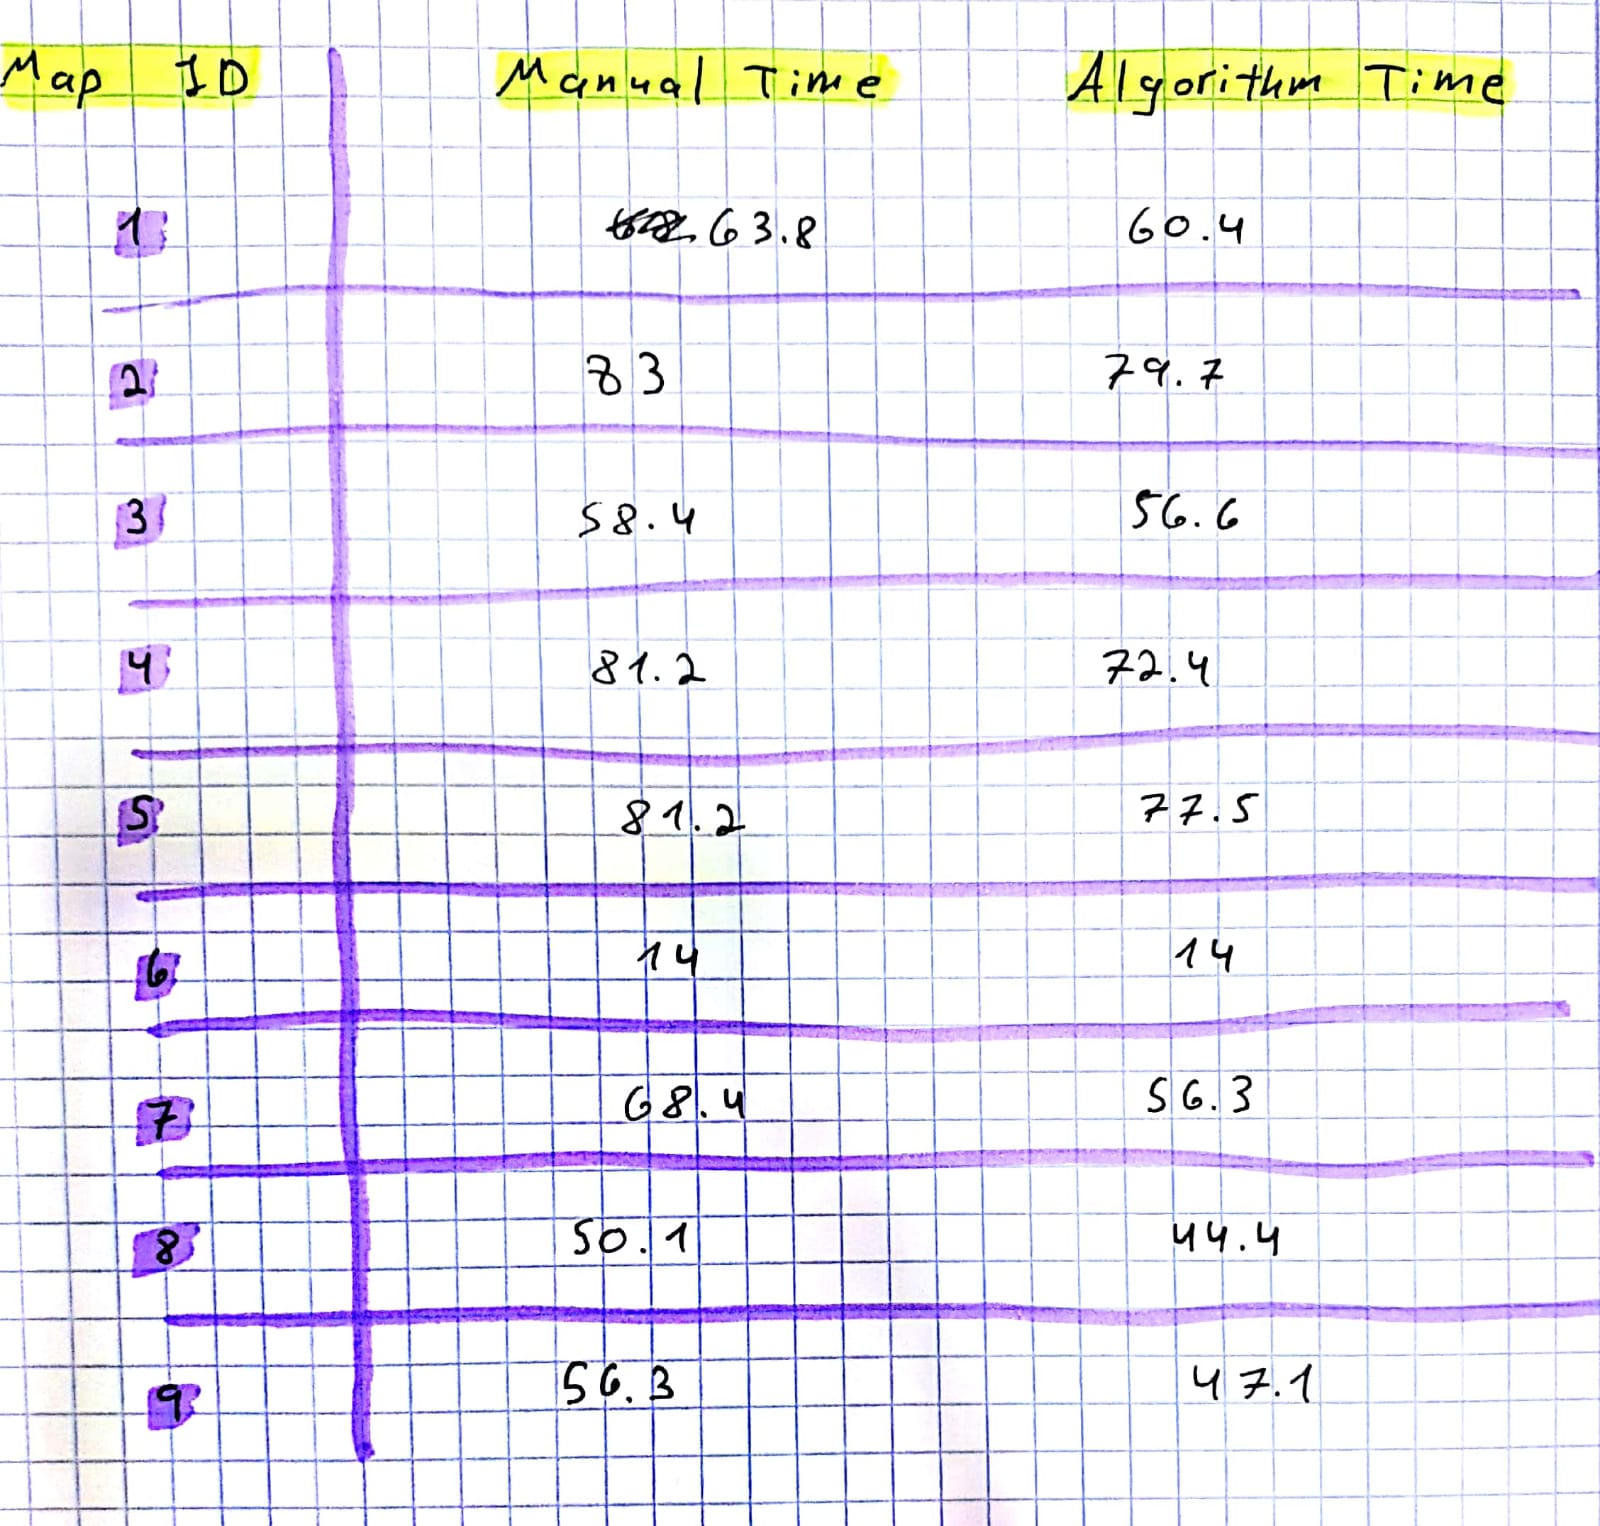 Map ID Manual Time Algorithm Time
1 63.8 60.4
2 83 79.7
3 58.4 56.6
4 81.2 72.4
5 81.2 77.5
6 14 14
7 68.4 56.3
8 50.1 44.4
9 56.3 47.1